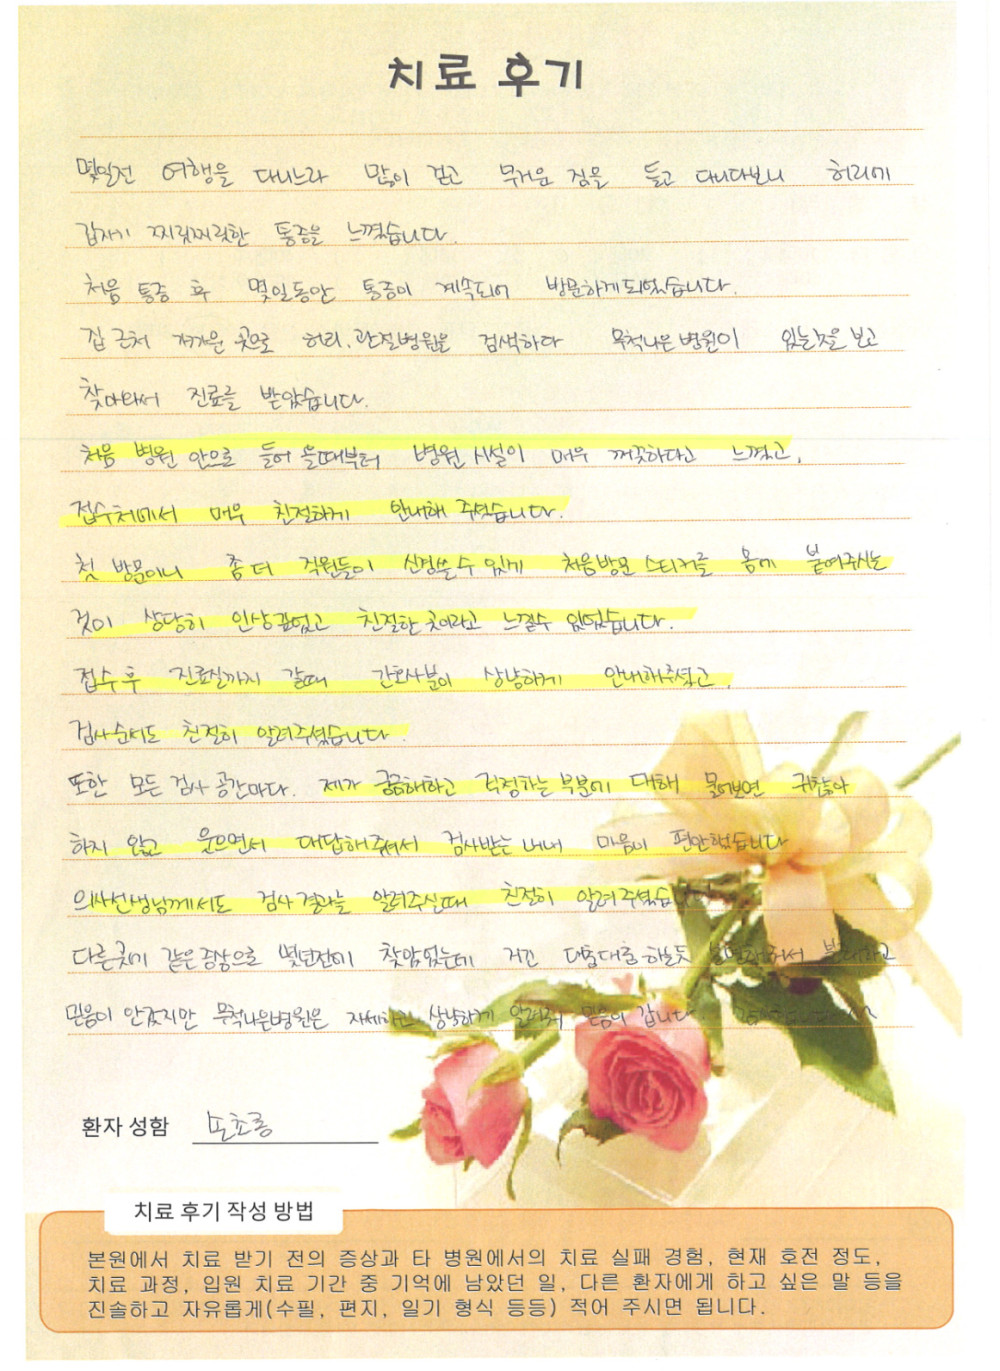 치료 후기
몇일전 여행을 다니느라 많이 걷고 무거운 짐을 들고 다니다보니 허리에
갑자기 찌릿찌릿한 통증을 느꼈습니다.
처음 통증 후 몇일동안 통증이 계속되어 방문하게되었습니다.
집 근처 가까운 곳으로 허리.관절병원을 검색하다 목척나은병원이 있는것을 보고
찾아와서 진료를 받았습니다.
처음 병원 안으로 들어 올때부터 병원 시설이 매우 깨끗하다고 느꼈고,
접수처에서 매우 친절하게 안내해 주셨습니다.
첫 방문이니 좀 더 직원들이 신경쓸 수 있게 처음방문 스티커를 몸에 붙여주시는
것이 상당히 인상깊었고 친절한 곳이라고 느낄수 있었습니다.
접수 후 진료실까지 갈때 간호사분이 상냥하게 안내해주셨고,
검사순서도 친절히 알려주셨습니다.
또한 모든 검사 공간마다. 제가 궁금해하고 걱정하는 부분에 대해 물어보면 귀찮아
하지 않고 웃으면서 대답해주셔서 검사받는 내내 마음이 편안했습니다
의사선생님께서도 검사결과를 알려주실때 친절히 알려주셨습니다
다른곳에 같은증상으로 몇년전에 찾았었는데 거긴 대충대충 하는듯 불안하고
믿음이 안갔지만 목척나은병원은 자세하고 상냥하게 알려줘 믿음이 갑니다.
환자 성함
치료 후기 작성 방법
본원에서 치료 받기 전의 증상과 타 병원에서의 치료 실패 경험, 현재 호전 정도,
치료 과정, 입원 치료 기간 중 기억에 남았던 일, 다른 환자에게 하고 싶은 말 등을
진솔하고 자유롭게(수필, 편지, 일기 형식 등등) 적어 주시면 됩니다.